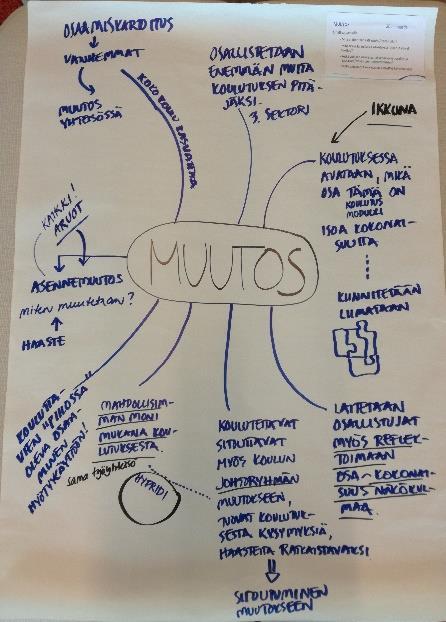 OSAAMISKARTOITUS
VANHEMMAT
MUUTOS
YHTEISÖSSÄ
KOKO KOULU KASVATTAA
OSALLISTETAAN
ENEMMÄN MUITA
KOULUTUKSEN PITÄ-
JÄKSI.
3. SEKTORI
MUUTOS
IKKUNA
KOULUTUKSESSA
AVATAAN, MIKÄ
OSA TÄMÄ ON
KOULUTUS
MODUULI
ISOA KOKONAI-
SUUTTA
KIINNITETÄÄN
LIIMATAAN
KAIKKI!
ARVOT
ASENNEMUUTOS
miten muutetaan?
HAASTE
MUUTOS
KOULUTTA-
JIEN "TALOSSA"
OLEVA OSAA-
MINEN
HYÖTYKÄYTTÖÖN!
MAHDOLLISIM-
MAN MONI
MUKANA KOU-
LUTUKSESTA.
sama työyhteisö
HYBRIDI
KOULUTETTAVAT
SITOUTTAVAT
MYÖS KOULUN
JOHTORYHMÄN
MUUTOKSEEN,
TUOVAT KOULUTUK-
SESTA KYSYMYKSIÄ,
HAASTEITA RATKAISTAVAKSI
SITOUTUMINEN
MUUTOKSEEN
LAITETAAN
OSALLISTUJAT
MYÖS REFLEK-
TOIMAAN
OSA - KOKONAI-
SUUS NÄKÖKUL-
MAA